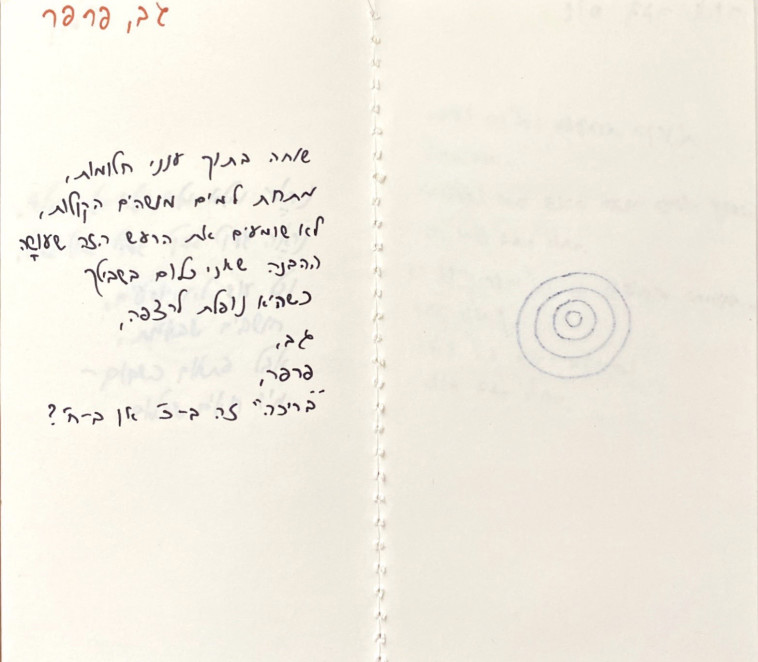 גב, פרפר
שוחה בתוך ענני חלומות,
מתחת למים מושהים הקולות,
לא שומעים את הרעש הזה שעושָה
ההבנה שאני כלום בשבילך
כשהיא נופלת לרצפה,
גב,
פרפר,
"בריכה" זה ב-כ' או ב-ח'?